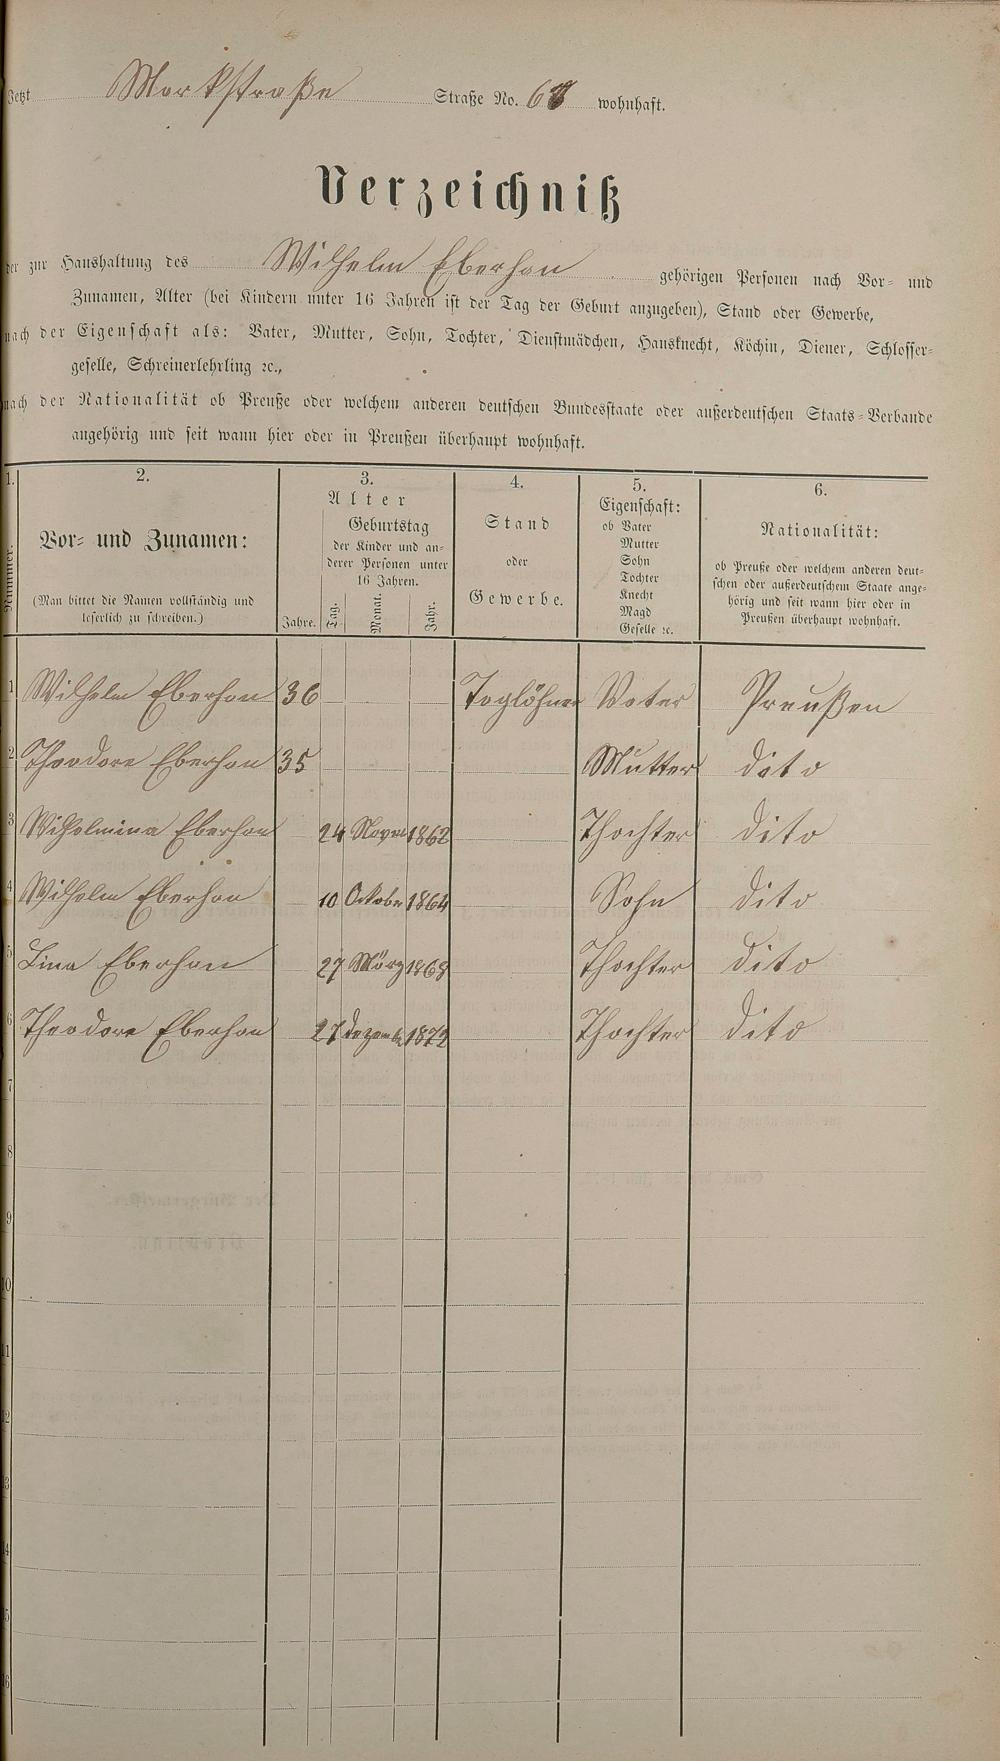 Jetzt Markstraße Straße No. 68 wohnhaft.
Verzeichniß
der zur Haushaltung des Wilhelm Eberhan gehörigen Personen nach Vor- und
Zunamen, Alter (bei Kindern unter 16 Jahren ist der Tag der Geburt anzugeben), Stand oder Gewerbe,
nach der Eigenschaft als: Vater, Mutter, Sohn, Tochter, Dienstmädchen, Hausknecht, Köchin, Diener, Schlosser-
geselle, Schreinerlehrling ꝛc.,
nach der Nationalität ob Preuße oder welchem anderen deutschen Bundesstaate oder außerdeutschen Staats-Verbande
angehörig und seit wann hier oder in Preußen überhaupt wohnhaft.
1. 2. 3. 4. 5. 6.
Nummer.
Vor- und Zunamen:
(Man bittet die Namen vollständig und
leserlich zu schreiben.)
Alter
Geburtstag
der Kinder und an-
derer Personen unter
16 Jahren.
Jahre. Tag. Monat. Jahr.
Stand
oder
Gewerbe.
Eigenschaft:
ob Vater
Mutter
Sohn
Tochter
Knecht
Magd
Geselle ꝛc.
Nationalität:
ob Preuße oder welchem anderen deut-
schen oder außerdeutschem Staate ange-
hörig und seit wann hier oder in
Preußen überhaupt wohnhaft.
1 Wilhelm Eberhan 36 Taglöhner Vater Preußen
2 Theodore Eberhan 35 Mutter dito
3 Wilhelmina Eberhan 24 Novem 1862 Thochter dito
4 Wilhelm Eberhan 10 Octobe 1864 Sohn dito
5 Lina Eberhan 27 März 1868 Thochter dito
6 Theodore Eberhan 27 Dezembe 1872 Thochter dito
7
8
9
10
11
12
13
14
15
16